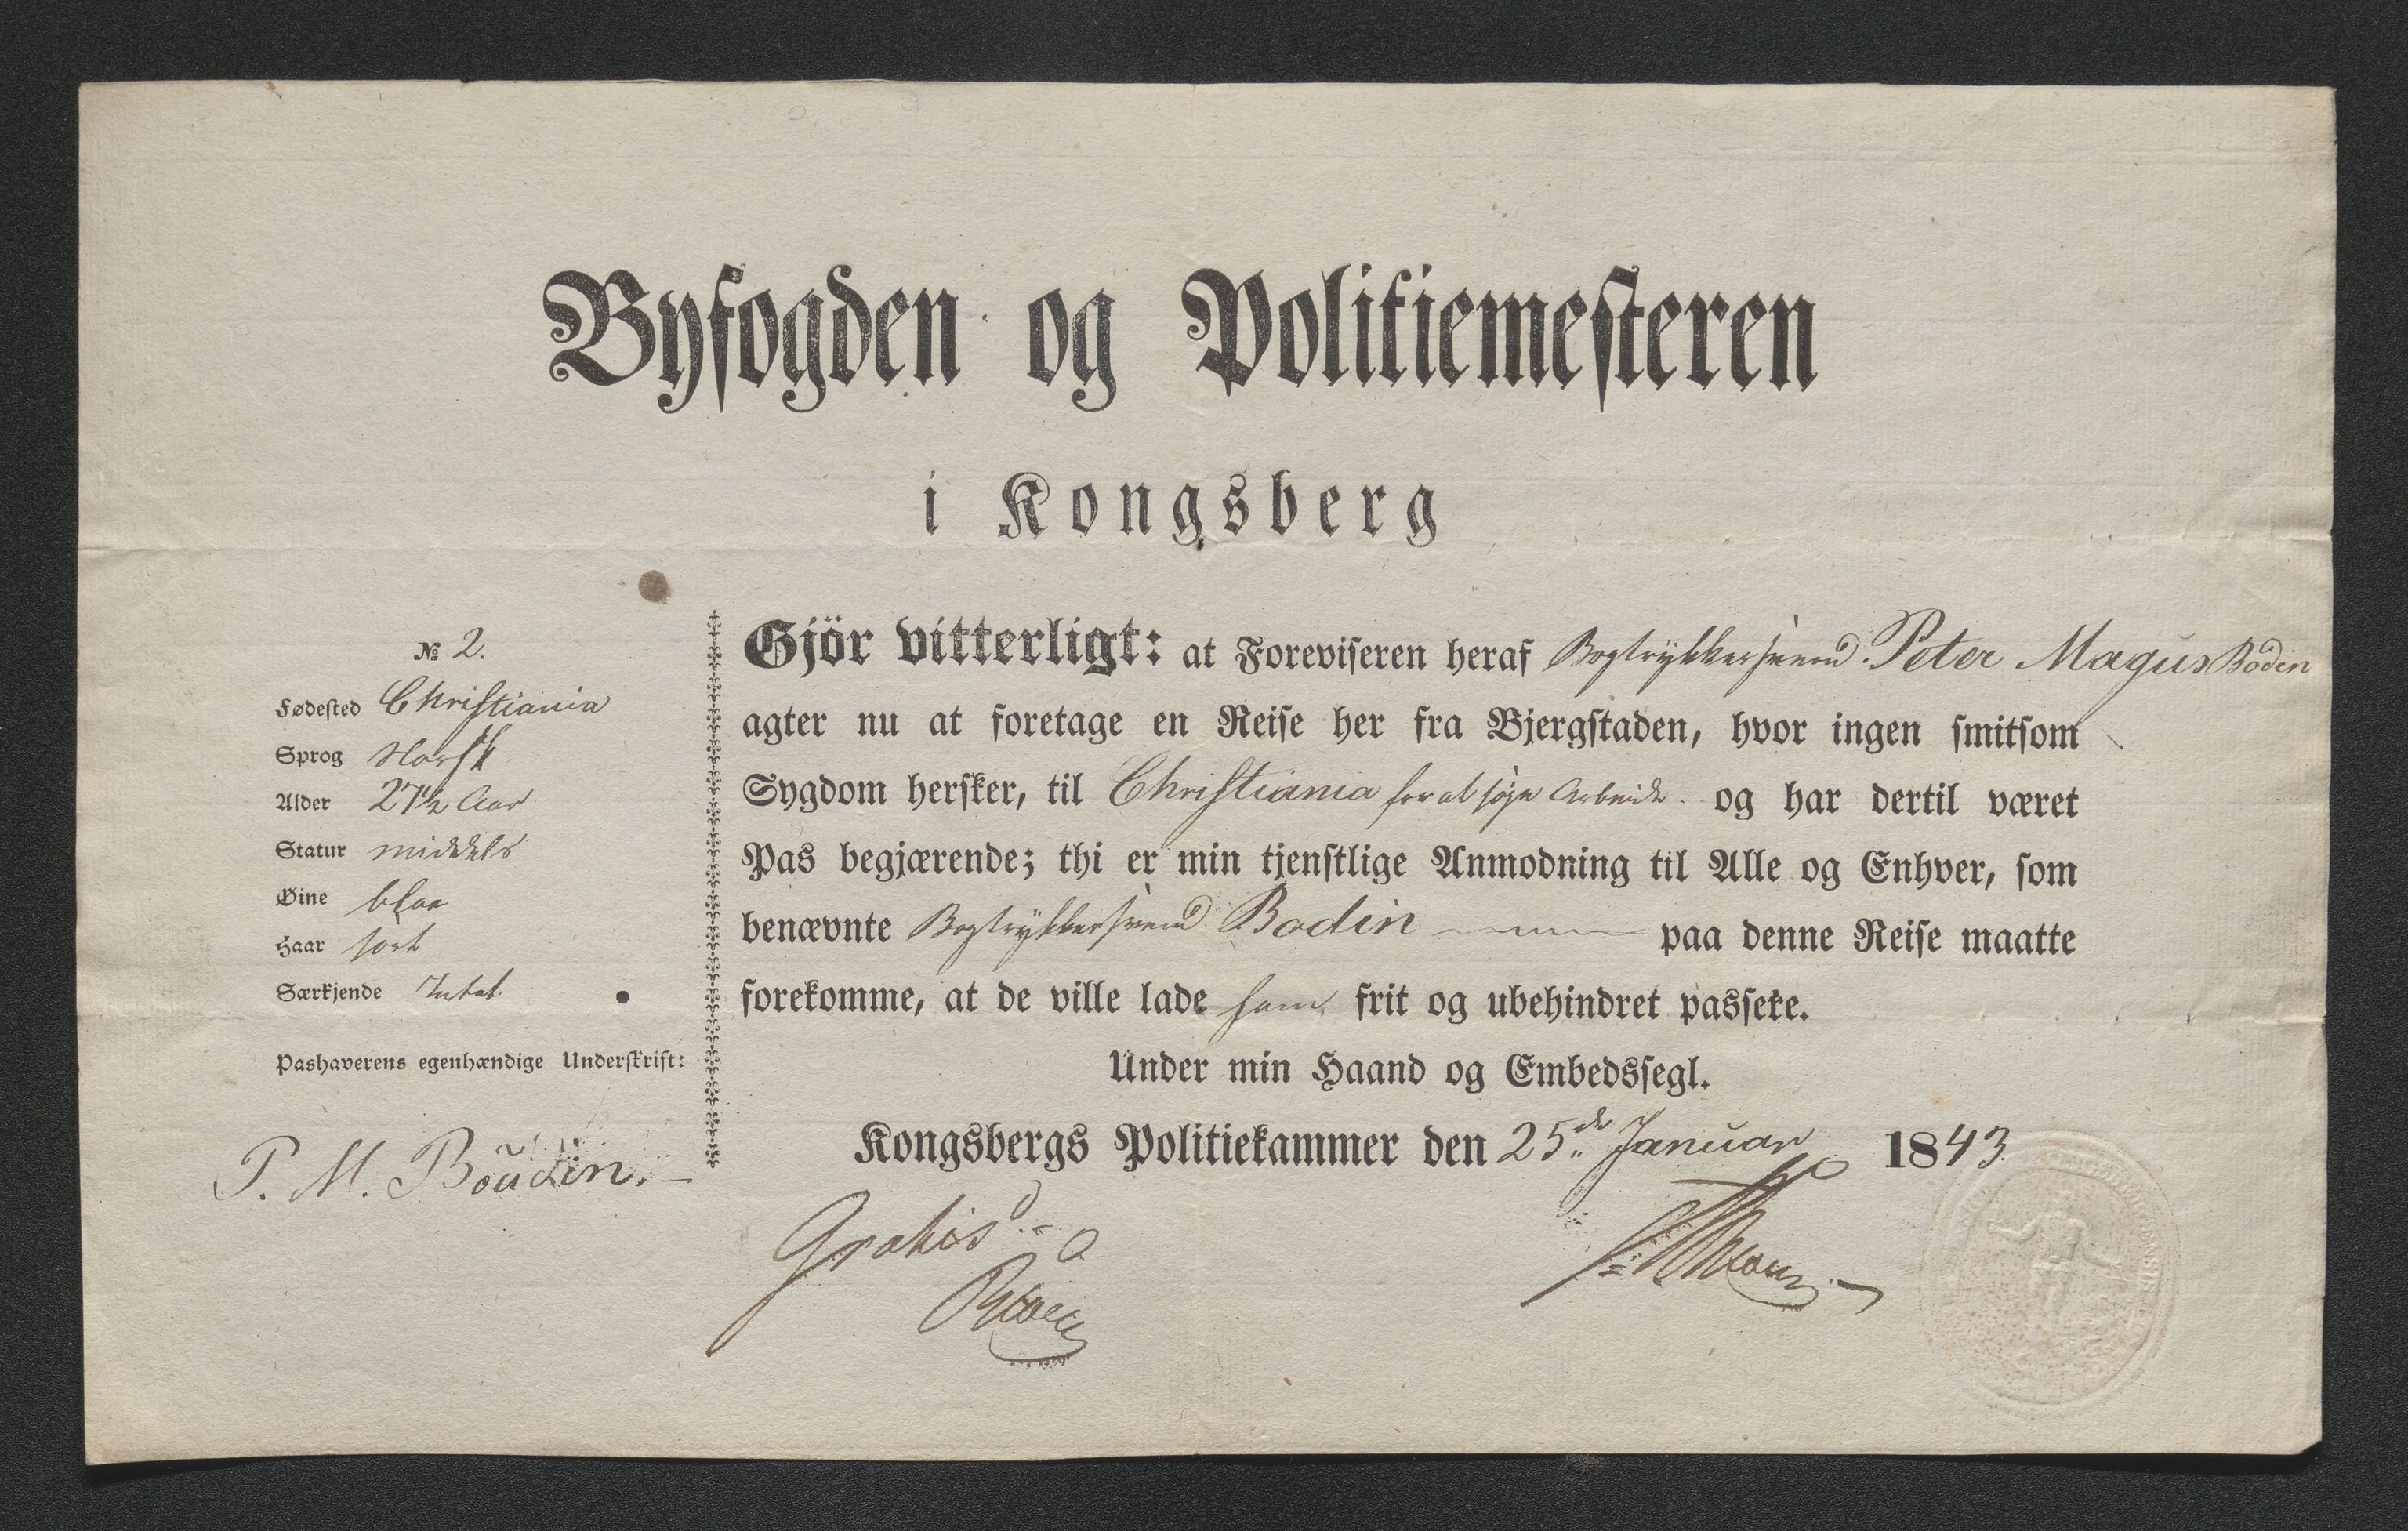 Byfogden og Politiemesteren
i Kongsberg
№ 2.
Fødested Christiania
Sprog Norsk
Alder 27½ Aar
Statur middels
Øine blaa
Haar sort
Særkjende Intet
Pashaverens egenhændige Underskrift:
P. M. Boudin.
Gjör vitterligt: at Foreviseren heraf Bogtrykkersvend Peter Magus Bodin
agter nu at foretage en Reise her fra Bjergstaden, hvor ingen smitsom
Sygdom hersker, til Christiania for at søge Arbeide og har dertil været
Pas begjærende; thi er min tjenstlige Anmodning til Alle og Enhver, som
benævnte Bogtrykkersvend Bodin paa denne Reise maatte
forekomme, at de ville lade ham frit og ubehindret passere.
Under min Haand og Embedssegl.
Kongsbergs Politiekammer den 25de Januar 1843.
Gratis